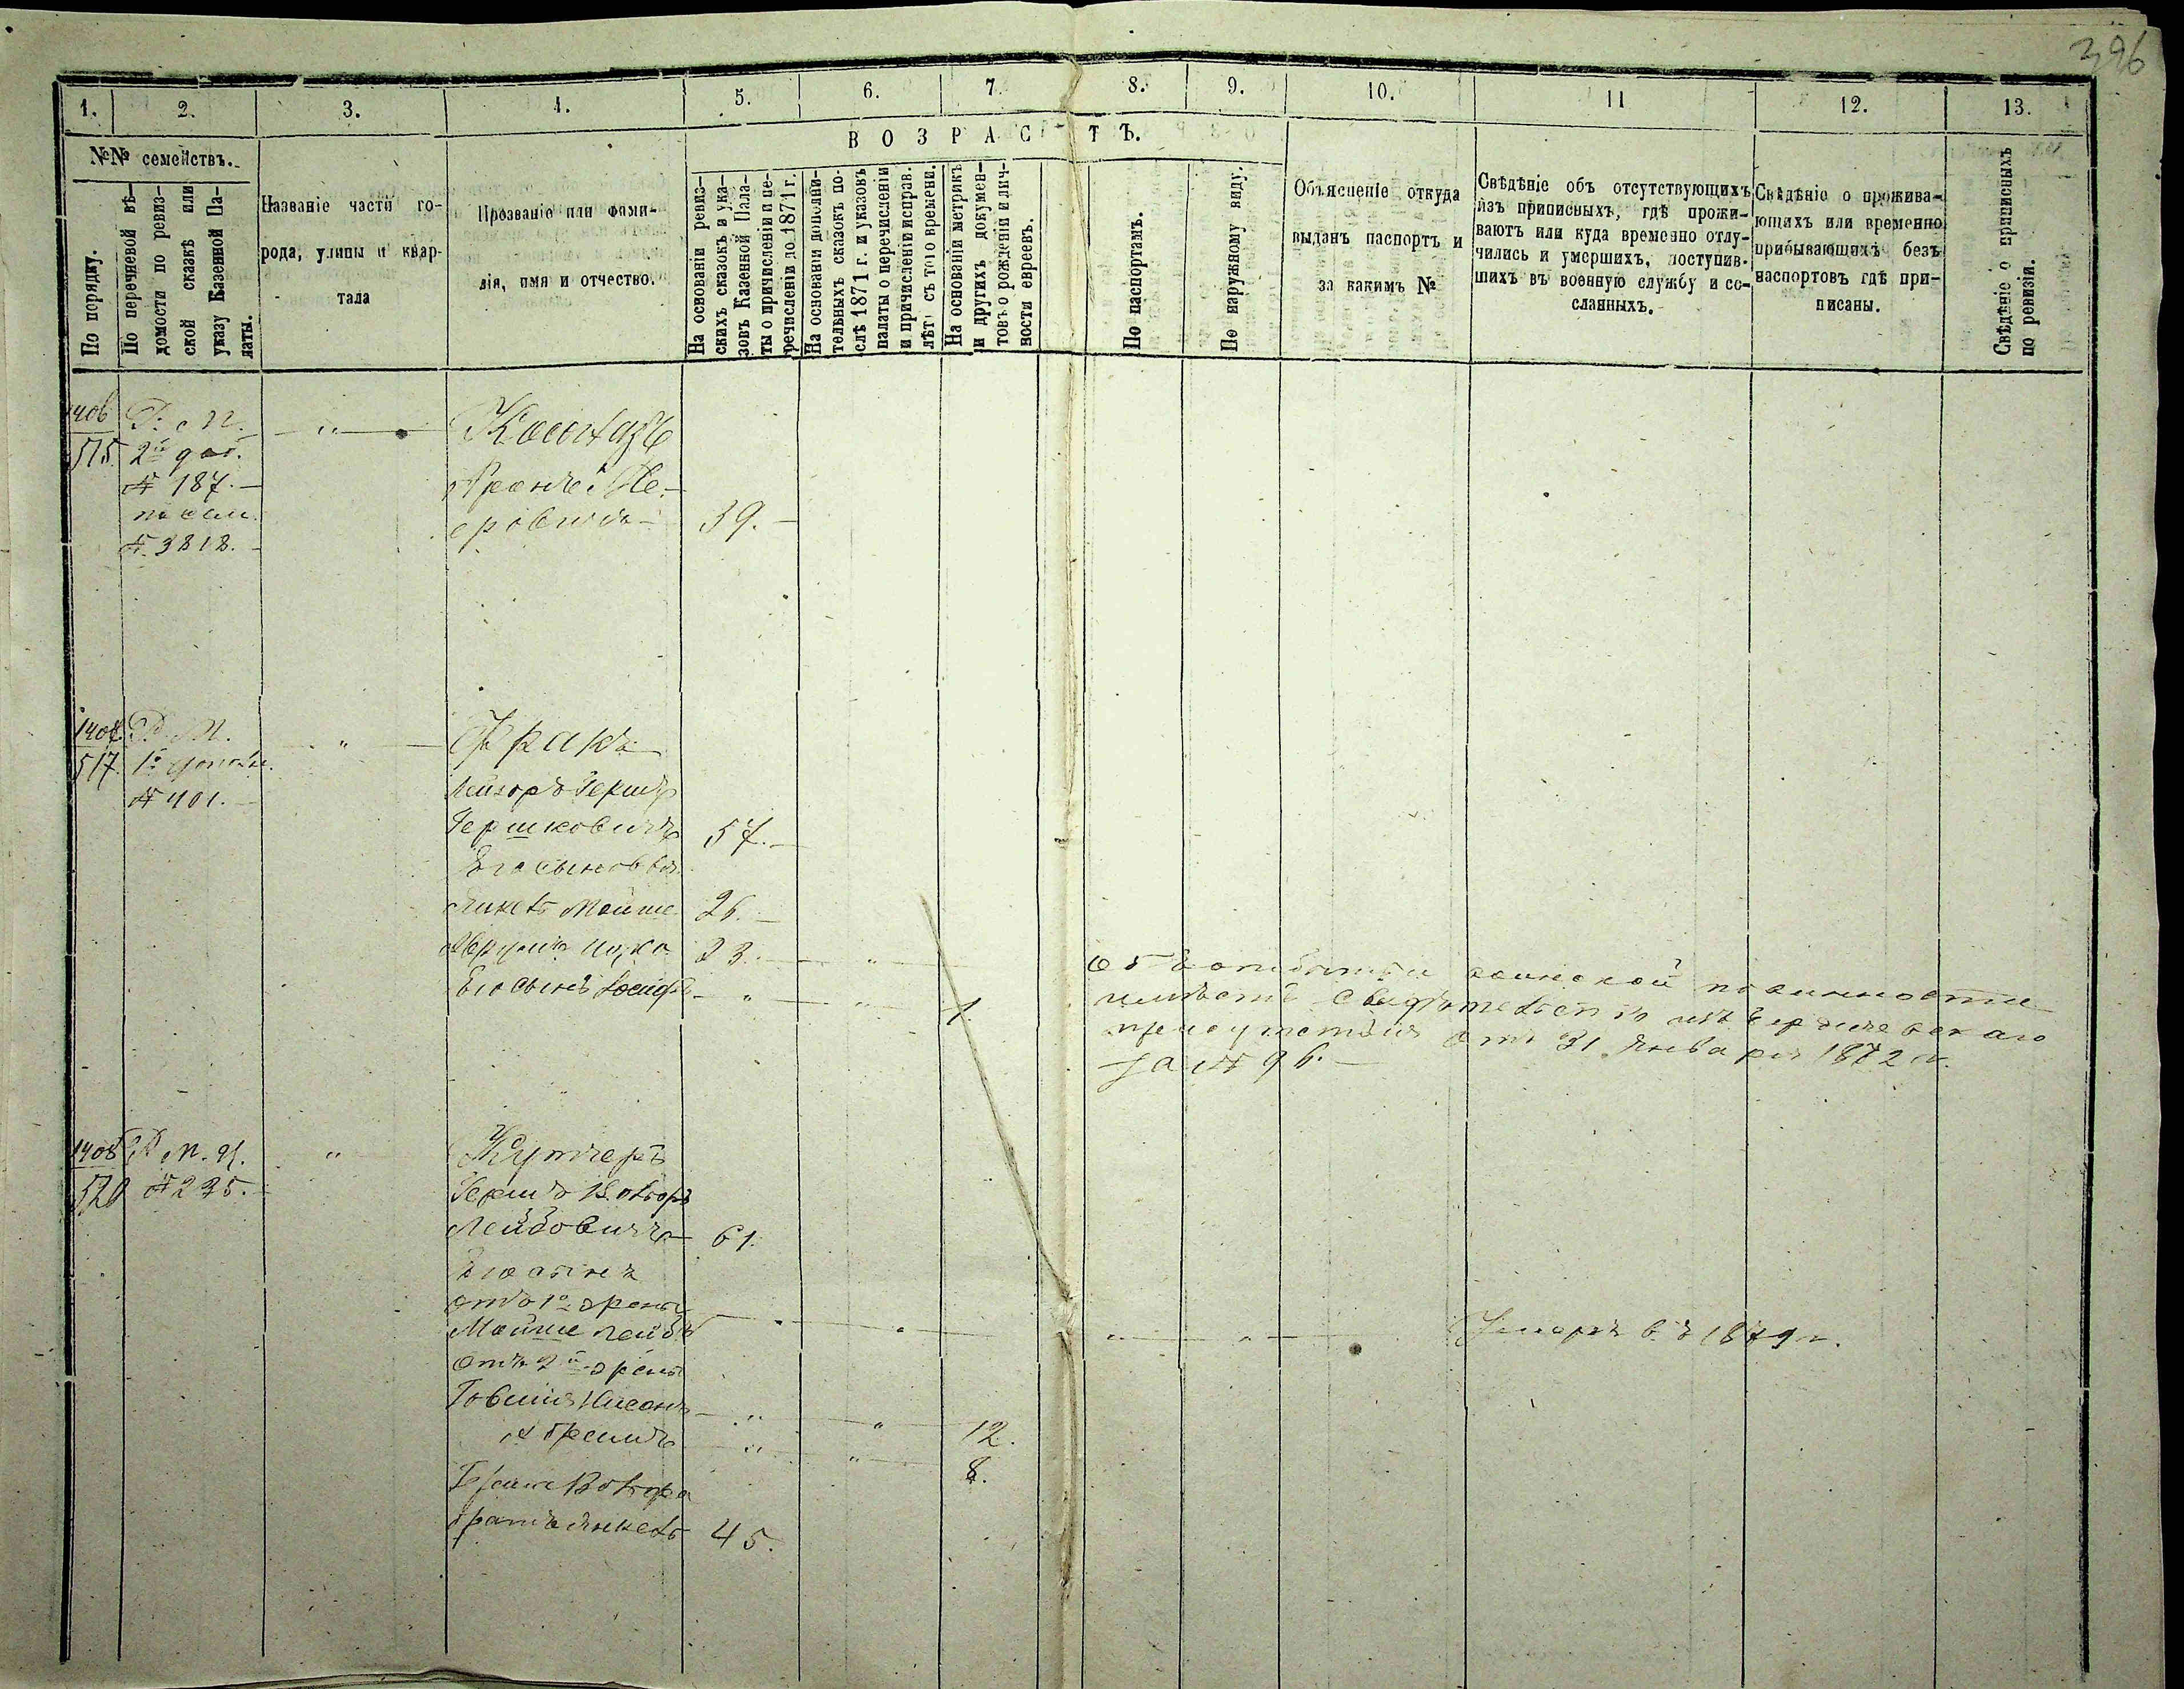 396
1.
2.
3.
4.
5.
6.
7.
8.
9.
10.
11
12.
13.
ВОЗРАСТЪ.
№№ семействъ.
По порядку.
По перечневой вѣ-
домости по ревиз-
ской сказкѣ или
указу Казенной Па-
латы.
Названіе части го-
рода, улицы и квар-
тала
Прозваніе или фами-
лія, имя и отчество.
На основаніи ревиз-
скихъ сказокъ и ука-
зовъ Казенной Пала-
ты о причисленіи и пе-
речисленіи до 1871 г.
На основаніи дополни-
тельныхъ сказокъ по-
слѣ 1871 г. и указовъ
палаты о перечисленіи
и причисленіи исправ.
лѣтъ съ того времени.
На основаніи метрикъ
и другихъ докумен-
товъ о рожденіи и лич-
ности евреевъ.
По паспортамъ.
По наружному виду.
Объясненіе откуда
выданъ паспортъ и
за какимъ №
Свѣдѣніе объ отсутствующихъ
изъ приписныхъ, гдѣ прожи-
ваютъ или куда временно отлу-
чились и умершихъ, поступив-
шихъ въ военную службу и со-
сланныхъ.
Свѣдѣніе о прожива-
ющихъ или временно
прибывающихъ безъ
паспортовъ гдѣ при-
писаны.
Свѣдѣніе о приписныхъ
по ревизіи.
1406
515.
Р. М.
2й
№ 187.
№ 3818.
"
Аронъ Ме-
еровичъ
39.
1407.
517.
Р. М.
1й
№ 401.
"
Фракъ
Лейзоръ Гершъ
Гершковичъ 57.
Его сыновья
Янкель Мойше 26.
Аврумъ 23. "
Его сынъ Іосифъ " " 1.
Объ отбытіи воинской повинности
имѣетъ свидѣтельство изъ
присутствія отъ 31 Января 1872 г.
за № 96.
1408
520
Р. М. Ч.
№ 235.
"
Кутчеръ
Гершъ Вольфъ
Лейбовичъ 61.
Его сынъ
отъ 1й жены
Мойше Лейбъ " " " " Умеръ въ 1879 г.
отъ 2й жены
Товшія Нисонъ " " 12.
" " 8.
Герша Вольфа
братъ Янкель 45.